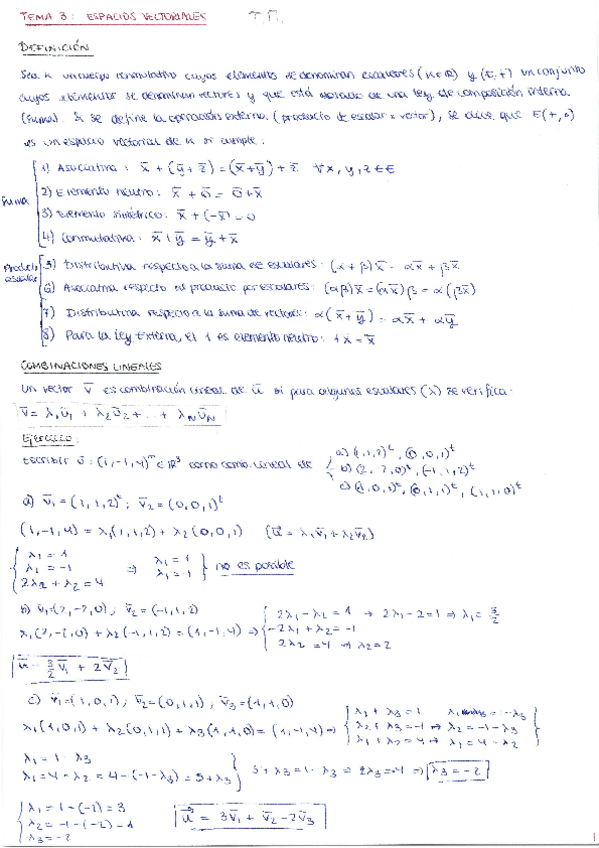 TEMA 3: ESPACIOS VECTORIALES T.P.
DEFINICIÓN
Sea K un cuerpo conmutativo cuyos elementos se denominan escalares (K∈R) y (E,+) un conjunto
cuyos elementos se denominan vectores y que está dotado de una ley de composición interna.
(suma). Si se define la operación externa (producto de escalar x vector), se dice que E(+,o)
es un espacio vectorial de K si cumple:
Suma
1) Asociativa: x̄ + (ȳ + z̄) = (x̄ + ȳ) + z̄ ∀x, y, z ∈ E
2) Elemento neutro: x̄ + ō = ō + x̄
3) Elemento simétrico: x̄ + (-x̄) = o
4) Conmutativa: x̄ + ȳ = ȳ + x̄
Producto escalar
5) Distributiva respecto a la suma de escalares: (α + β)x̄ = αx̄ + βx̄
6) Asociativa respecto al producto por escalares: (αβ)x̄ = (αx̄)β = α(βx̄)
7) Distributiva respecto a la suma de vectores: α(x̄ + ȳ) = αx̄ + αȳ
8) Para la ley Externa, el 1 es elemento neutro: 1x̄ = x̄
COMBINACIONES LINEALES
Un vector v̄ es combinación lineal de ū si para algunos escalares (λ) se verifica:
v̄ = λ₁ū₁ + λ₂ū₂ + ... + λNūN
Ejercicio:
Escribir ū: (1,-1,4) ∈ R³ como comb. lineal de
a) (1,1,2)ᵗ, (0,0,1)ᵗ
b) (2,-2,0)ᵗ, (-1,1,2)ᵗ
c) (1,0,1)ᵗ, (0,1,1)ᵗ, (1,1,0)ᵗ
a) v̄₁ = (1,1,2)ᵗ; v̄₂ = (0,0,1)ᵗ
(1,-1,4) = λ₁(1,1,2) + λ₂(0,0,1) [ū = λ₁v̄₁ + λ₂v̄₂]
λ₁ = 1
λ₁ = -1 ⇒ λ₁ = 1 λ₁ = -1 } no es posible
2λ₂ + λ₂ = 4
b) v̄₁ = (2,-2,0); v̄₂ = (-1,1,2)
λ₁(2,-2,0) + λ₂(-1,1,2) = (1,-1,4) ⇒
2λ₁ - λ₂ = 1 → 2λ₁ - 2 = 1 ⇒ λ₁ = 3/2
-2λ₁ + λ₂ = -1
2λ₂ = 4 ⇒ λ₂ = 2
ū = 3/2 v̄₁ + 2v̄₂
c) v̄₁ = (1,0,1); v̄₂ = (0,1,1); v̄₃ = (1,1,0)
λ₁(1,0,1) + λ₂(0,1,1) + λ₃(1,1,0) = (1,-1,4) ⇒
λ₁ + λ₃ = 1 λ₁ = 1 - λ₃
λ₂ + λ₃ = -1 → λ₂ = -1 - λ₃
λ₁ + λ₂ = 4 → λ₁ = 4 - λ₂
λ₁ = 1 - λ₃
λ₁ = 4 - λ₂ = 4 - (-1 - λ₃) = 5 + λ₃
5 + λ₃ = 1 - λ₃ ⇒ 2λ₃ = -4 ⇒ λ₃ = -2
λ₁ = 1 - (-2) = 3
λ₂ = -1 - (-2) = 1
λ₃ = -2
ū = 3v̄₁ + v̄₂ - 2v̄₃
1